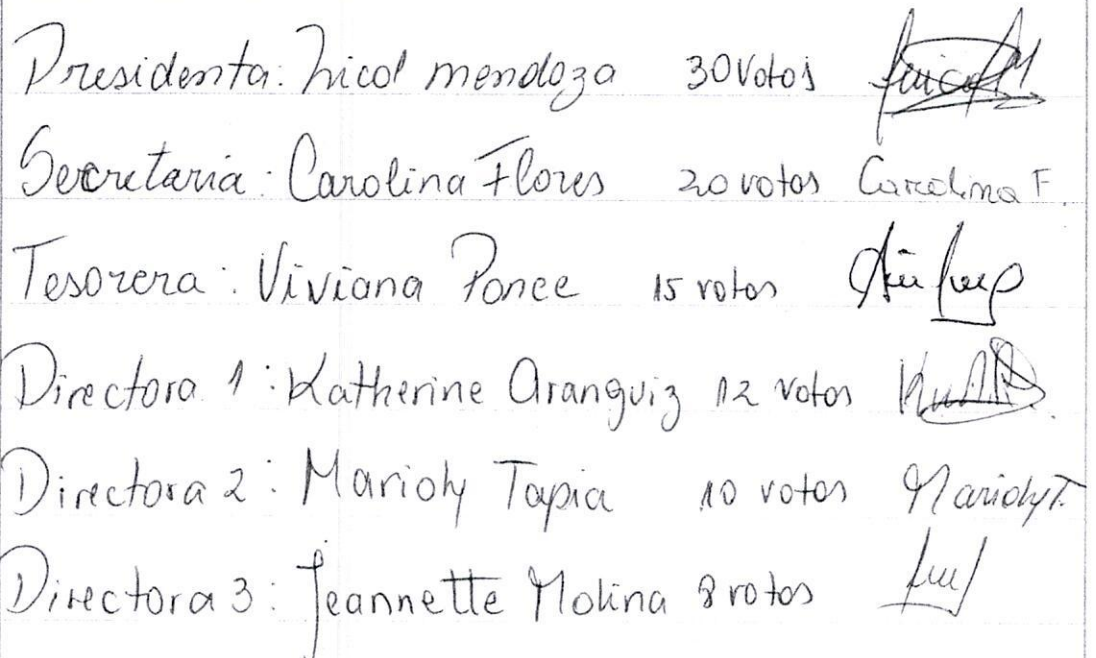 Presidenta: Nicol mendoza 30 Votos
Secretaria: Carolina Flores 20 votos Carolina F.
Tesorera: Viviana Ponce 15 votos
Directora 1: Katherine Aranguiz 12 votos
Directora 2: Marioly Tapia 10 votos Marioly T.
Directora 3: Jeannette Molina 8 votos